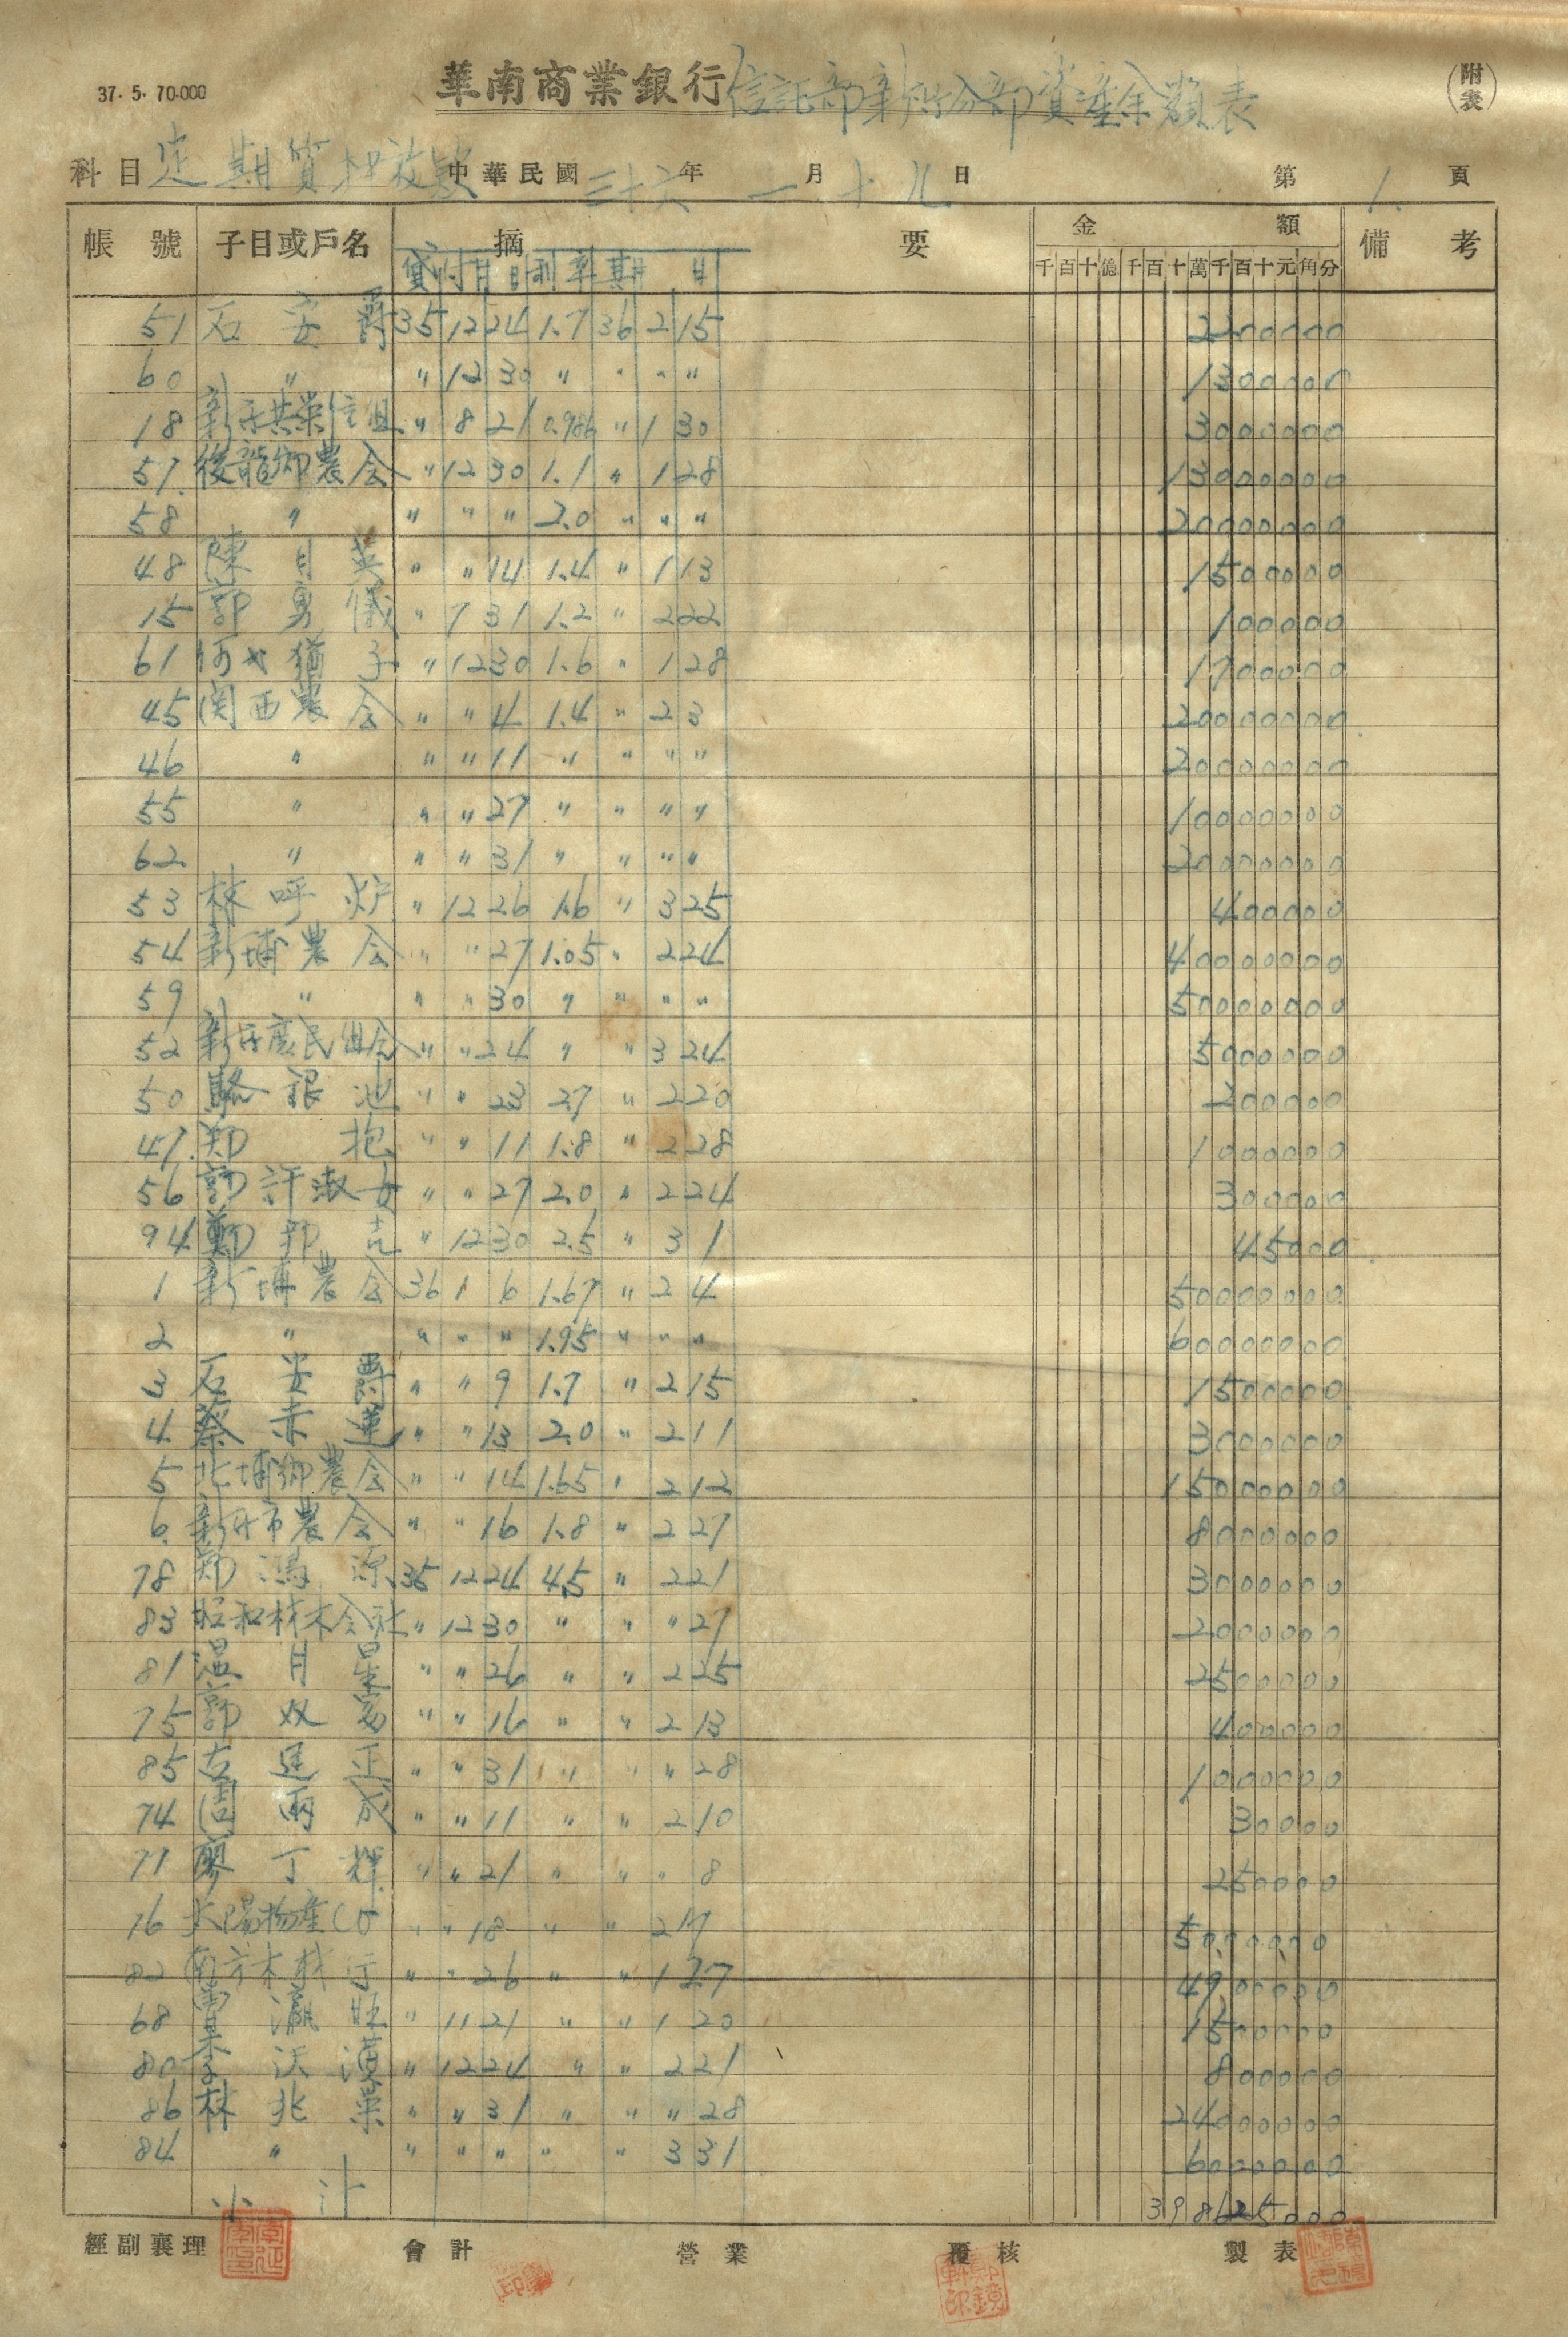 37. 5. 70.000
華南商業銀行信託部新竹分部資產余額表
(附表)
科目 定期質押放款 中華民國三十六年一月十九日 第1.頁
帳號 子目或戶名 摘要 金額 備考
貸付月日 利率 期日 千百十億千百十萬千百十元角分
51 石安爵 35 12 24 1.7 36 2 15 2200000
60 〃 〃 12 30 〃 〃 〃 〃 1300000
18 新竹共榮信組 〃 8 21 0.986 〃 1 30 3000000
57 後龍鄉農会 〃 12 30 1.1 〃 1 28 13000000
58 〃 〃 〃 〃 2.0 〃 〃 〃 20000000
48 陳月英 〃 〃 14 1.4 〃 1 13 1500000
15 郭勇儀 〃 7 31 1.2 〃 2 22 100000
61 何犹子 〃 12 30 1.6 〃 1 28 1700000
45 関西農会 〃 〃 4 1.4 〃 2 3 20000000
46 〃 〃 〃 11 〃 〃 〃 〃 20000000
55 〃 〃 〃 27 〃 〃 〃 〃 10000000
62 〃 〃 〃 31 〃 〃 〃 〃 20000000
53 林呼炉 〃 12 26 1.6 〃 3 25 400000
54 新埔農会 〃 〃 27 1.05 〃 2 24 40000000
59 〃 〃 〃 30 〃 〃 〃 〃 50000000
52 新竹庶民組合 〃 〃 24 〃 〃 3 24 5000000
50 駱銀池 〃 〃 23 2.7 〃 2 20 200000
47 鄭抱 〃 〃 11 1.8 〃 2 28 1000000
56 郭許淑女 〃 〃 27 2.0 〃 2 24 300000
94 鄭邦吉 〃 12 30 2.5 〃 3 1 45000
1 新埔農会 36 1 6 1.67 〃 2 4 50000000
2 〃 〃 〃 〃 1.95 〃 〃 〃 60000000
3 石安爵 〃 〃 9 1.7 〃 2 15 1500000
4 蔡赤蓮 〃 〃 13 2.0 〃 2 11 3000000
5 北埔鄉農会 〃 〃 14 1.65 〃 2 12 15000000
6 新竹市農会 〃 〃 16 1.8 〃 2 27 8000000
78 鄭鴻源 35 12 24 4.5 〃 2 21 3000000
83 昭和材木会社 〃 12 30 〃 〃 〃 27 2000000
81 温月星 〃 〃 26 〃 〃 2 25 2500000
75 郭奴 〃 〃 16 〃 〃 2 13 400000
85 古廷正 〃 〃 31 〃 〃 〃 28 1000000
74 周両成 〃 〃 11 〃 〃 2 10 30000
71 廖丁輝 〃 〃 21 〃 〃 〃 8 250000
76 太陽物産CO 〃 〃 18 〃 〃 2 17 5000000
82 南方木材行 〃 〃 26 〃 〃 1 27 4900000
68 瀛旺 〃 11 21 〃 〃 1 20 1500000
80 李沃漢 〃 12 24 〃 〃 2 21 800000
86 林兆栄 〃 〃 31 〃 〃 〃 28 24000000
84 〃 〃 〃 〃 〃 〃 3 31 6000000
小計 398625000
經副襄理 會計 營業 覆核 製表